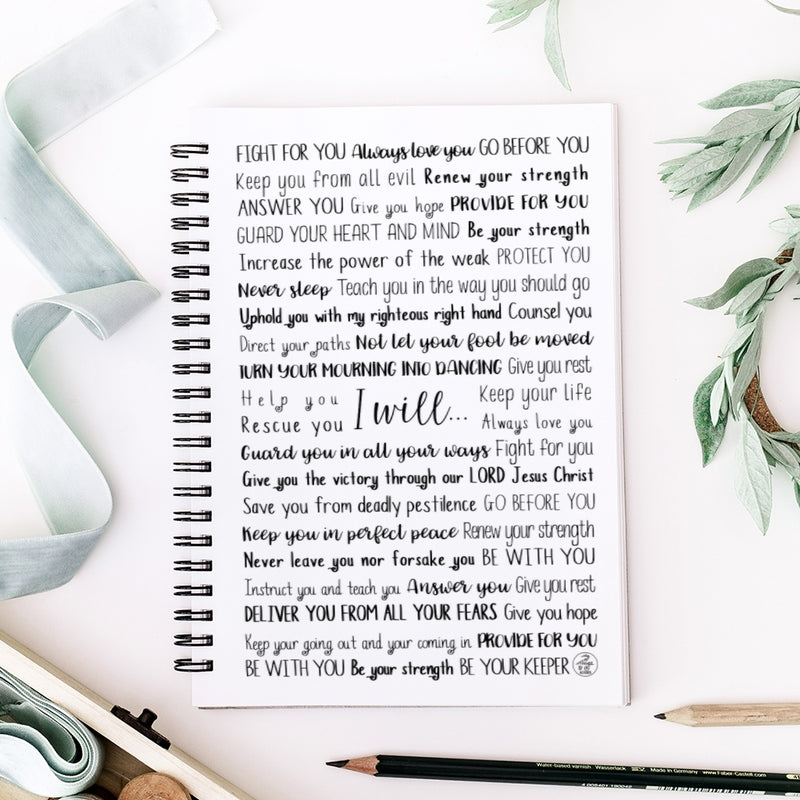 FIGHT FOR YOU Always love you GO BEFORE YOU
Keep you from all evil Renew your strength
ANSWER YOU Give you hope PROVIDE FOR YOU
GUARD YOUR HEART AND MIND Be your strength
Increase the power of the weak PROTECT YOU
Never sleep Teach you in the way you should go
Uphold you with my righteous right hand Counsel you
Direct your paths Not let your foot be moved
TURN YOUR MOURNING INTO DANCING Give you rest
Help you
Rescue you
I will...
Keep your life
Always love you
Guard you in all your ways Fight for you
Give you the victory through our LORD Jesus Christ
Save you from deadly pestilence GO BEFORE YOU
Keep you in perfect peace Renew your strength
Never leave you nor forsake you BE WITH YOU
Instruct you and teach you Answer you Give you rest
DELIVER YOU FROM ALL YOUR FEARS Give you hope
Keep your going out and your coming in PROVIDE FOR YOU
BE WITH YOU Be your strength BE YOUR KEEPER
Water-based varnish Wasserlack Made in Germany www.Faber-Castell.com